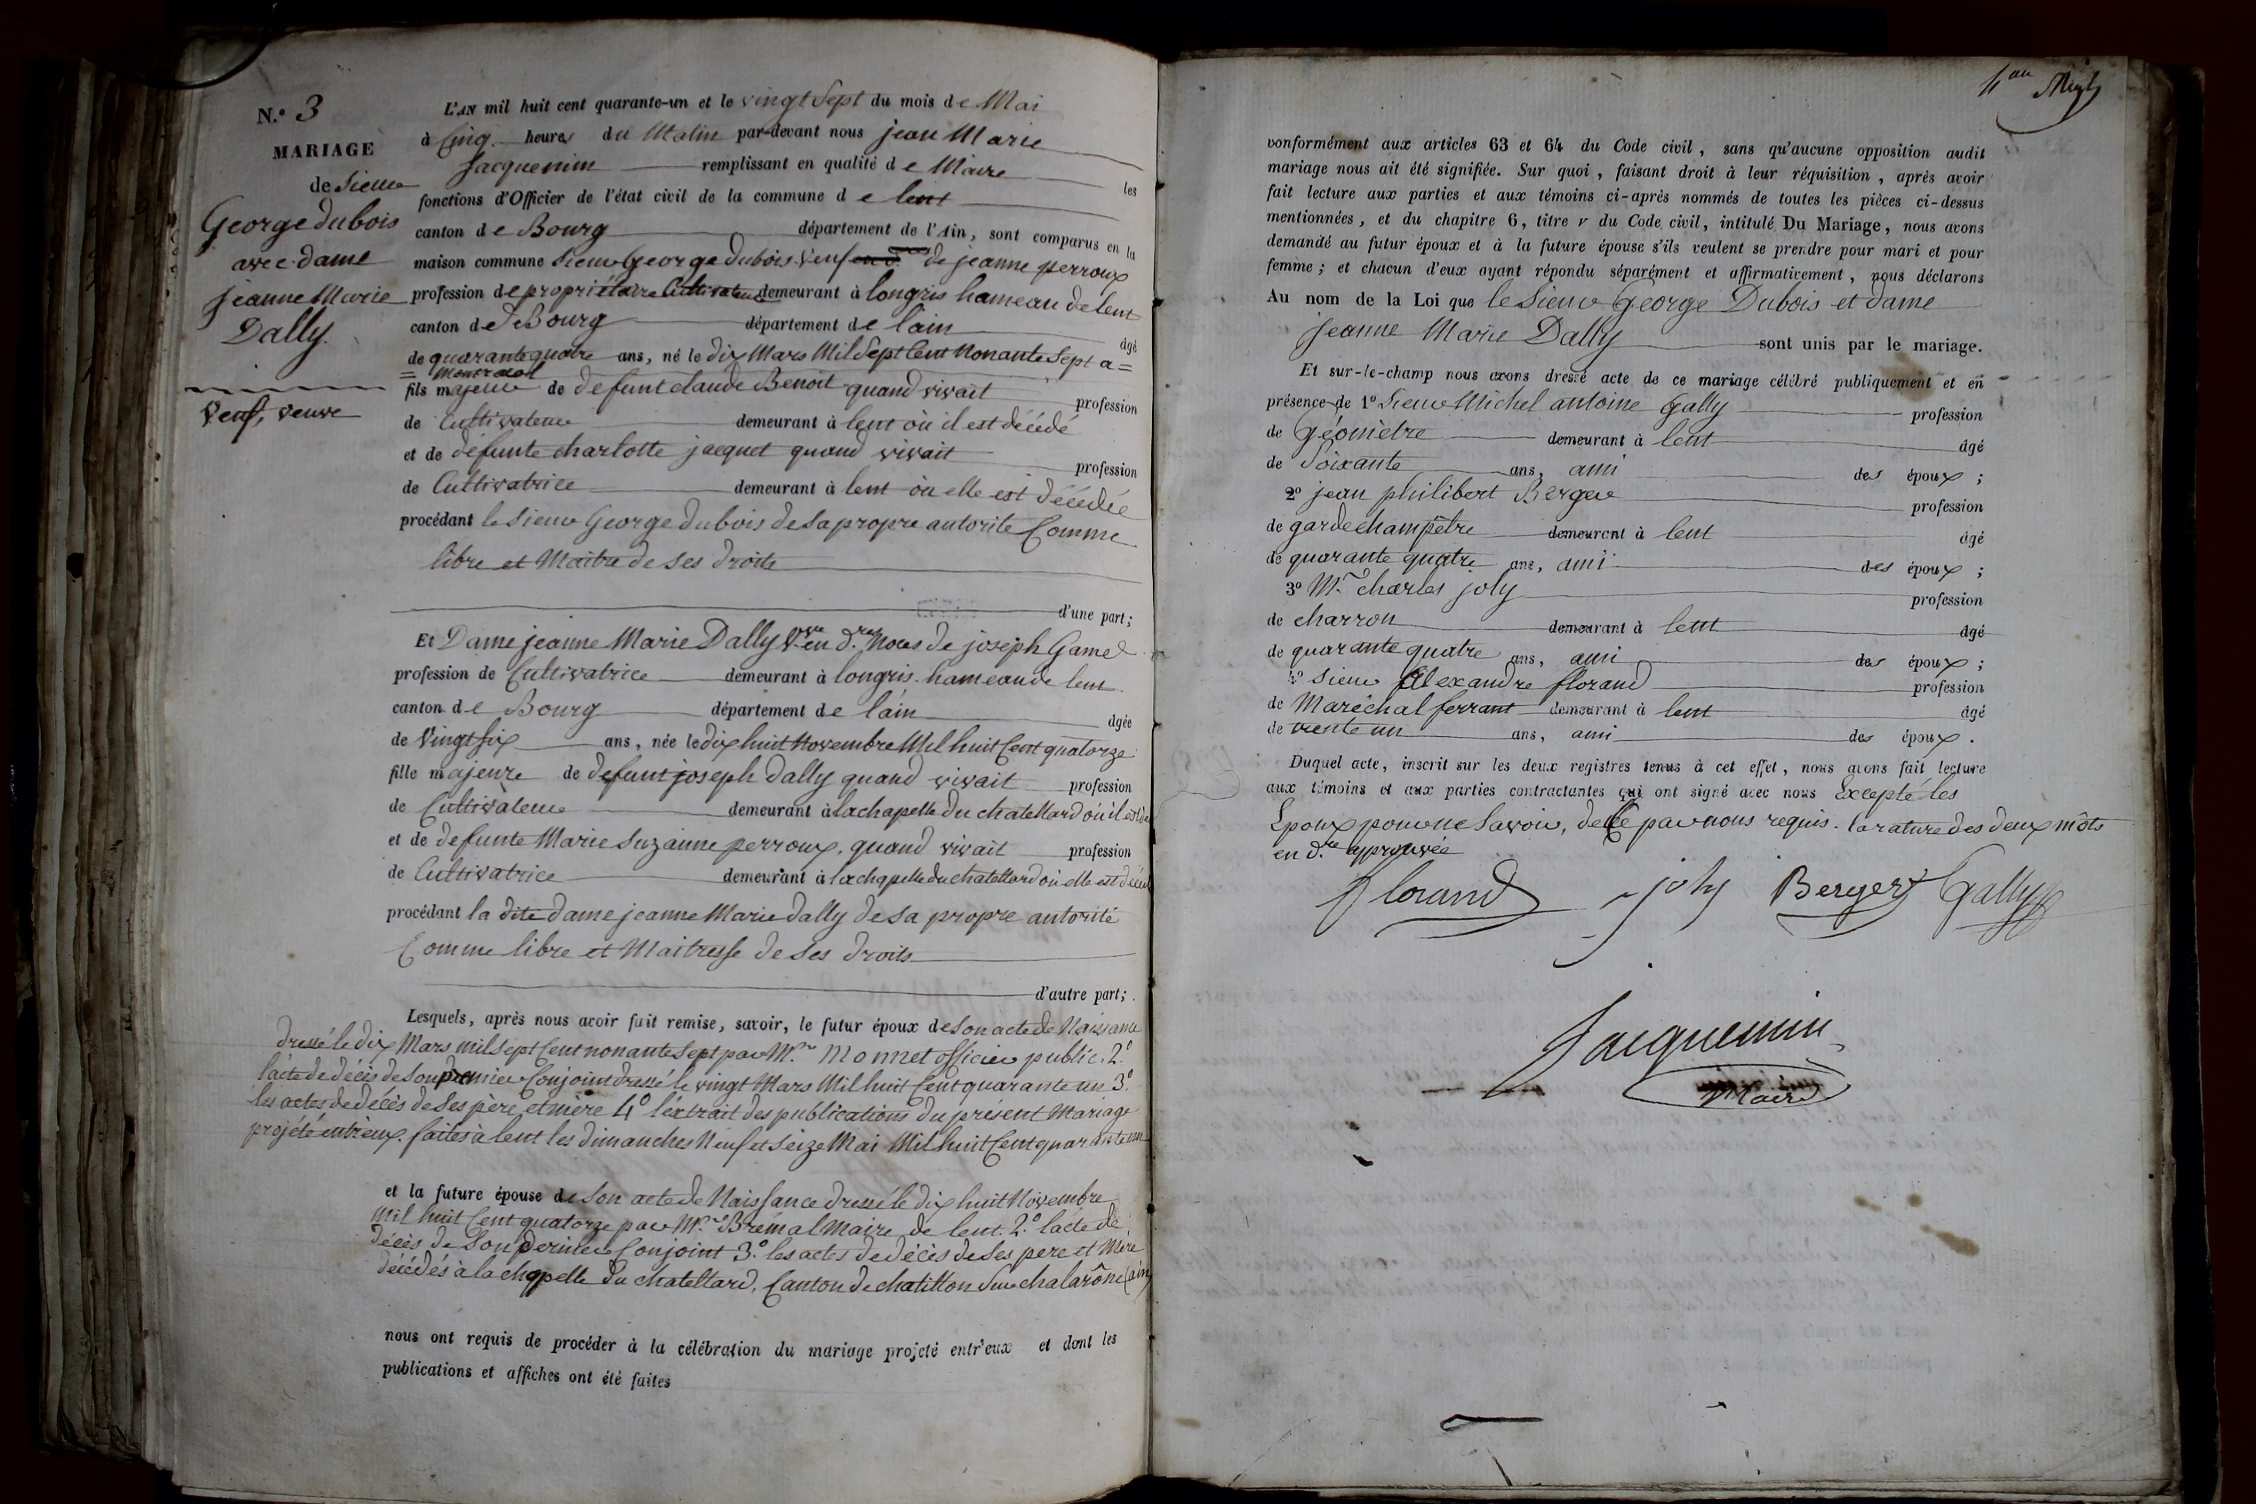 N.° 3
MARIAGE
de Sieur
George dubois
avec dame
jeanne Marie
Dally.
Veuf, veuve
L'AN mil huit cent quarante-un et le vingt Sept du mois de Mai
à Cinq heures du Matin par-devant nous jean Marie
Jacquemin remplissant en qualité de Maire les
fonctions d'Officier de l'état civil de la commune de lent
canton de Bourg département de l'Ain, sont comparus en la
maison commune Sieur George dubois Veuf en d.res de jeanne perroux
profession de propriétaire Cultivateur demeurant à longris hameau de lent
canton de Bourg département de l'ain âgé
de quarante quatre ans, né le dix Mars Mil Sept Cent Nonante Sept a=
= Montracol
fils majeur de defunt claude Benoit quand vivait profession
de Cultivateur demeurant à lent où il est décédé
et de défunte charlotte jacquet quand vivait profession
de Cultivatrice demeurant à lent où elle est décédée
procédant le Sieur George dubois de sa propre autorité Comme
libre et Maître de ses droits
d'une part;
Et Dame jeanne Marie Dally Vve en d.res Noces de joseph Gamel
profession de Cultivatrice demeurant à longris hameau de lent
canton de Bourg département de l'ain âgée
de Vingt six ans, née le dix huit Novembre Mil huit Cent quatorze
fille majeure de defunt joseph Dally quand vivait profession
de Cultivateur demeurant à la chapelle du chatellard où il est dé
et de defunte Marie Suzanne perroux, quand vivait profession
de Cultivatrice demeurant à la chapelle du chatellard où elle est décéd
procédant la dite dame jeanne Marie dally de sa propre autorité
Comme libre et Maitresse de ses droits
d'autre part;
Lesquels, après nous avoir fait remise, savoir, le futur époux de son acte de Naissance
dressé le dix Mars mil sept Cent nonante sept par Mr. Monnet officier public. 2.°
l'acte de décès de son premier Conjoint dressé le vingt Mars Mil huit Cent quarante un 3.°
les actes de décès de ses père et mère 4.° l'extrait des publications du présent Mariage
projeté entr'eux. faites à lent les dimanches Neuf et Seize Mai Mil huit Cent quarante un
et la future épouse de son acte de Naissance dressé le dix huit Novembre
Mil huit Cent quatorze par Mr. Brémal Maire de lent. 2.° l'acte de
décès de son dernier Conjoint 3.° les actes de décès de ses pere et Mère
décédés à la chapelle du chatellard, Canton de chatillon sur chalarône (ain)
nous ont requis de procéder à la célébration du mariage projeté entr'eux et dont les
publications et affiches ont été faites
conformément aux articles 63 et 64 du Code civil, sans qu'aucune opposition audit
mariage nous ait été signifiée. Sur quoi, faisant droit à leur réquisition, après avoir
fait lecture aux parties et aux témoins ci-après nommés de toutes les pièces ci-dessus
mentionnées, et du chapitre 6, titre V du Code civil, intitulé Du Mariage, nous avons
demandé au futur époux et à la future épouse s'ils veulent se prendre pour mari et pour
femme; et chacun d'eux ayant répondu séparément et affirmativement, nous déclarons
Au nom de la Loi que le Sieur George Dubois et dame
jeanne Marie Dally sont unis par le mariage.
Et sur-le-champ nous avons dressé acte de ce mariage célébré publiquement et en
présence de 1° Sieur Michel antoine Gally profession
de Géomètre demeurant à lent âgé
de Soixante ans, ami des époux;
2° jean philibert Berger profession
de garde champêtre demeurant à lent âgé
de quarante quatre ans, ami des époux;
3° Mr. charles joly profession
de charron demeurant à lent âgé
de quarante quatre ans, ami des époux;
4° Sieur Alexandre florand profession
de Maréchal ferrant demeurant à lent âgé
de trente un ans, ami des époux.
Duquel acte, inscrit sur les deux registres tenus à cet effet, nous avons fait lecture
aux témoins et aux parties contractantes qui ont signé avec nous Excepté les
Epoux pour ne Savoir, de Ce par nous requis. la rature des deux môts
en d.re approuvée
florand joly Berger Gally
Jacquemin
Maire